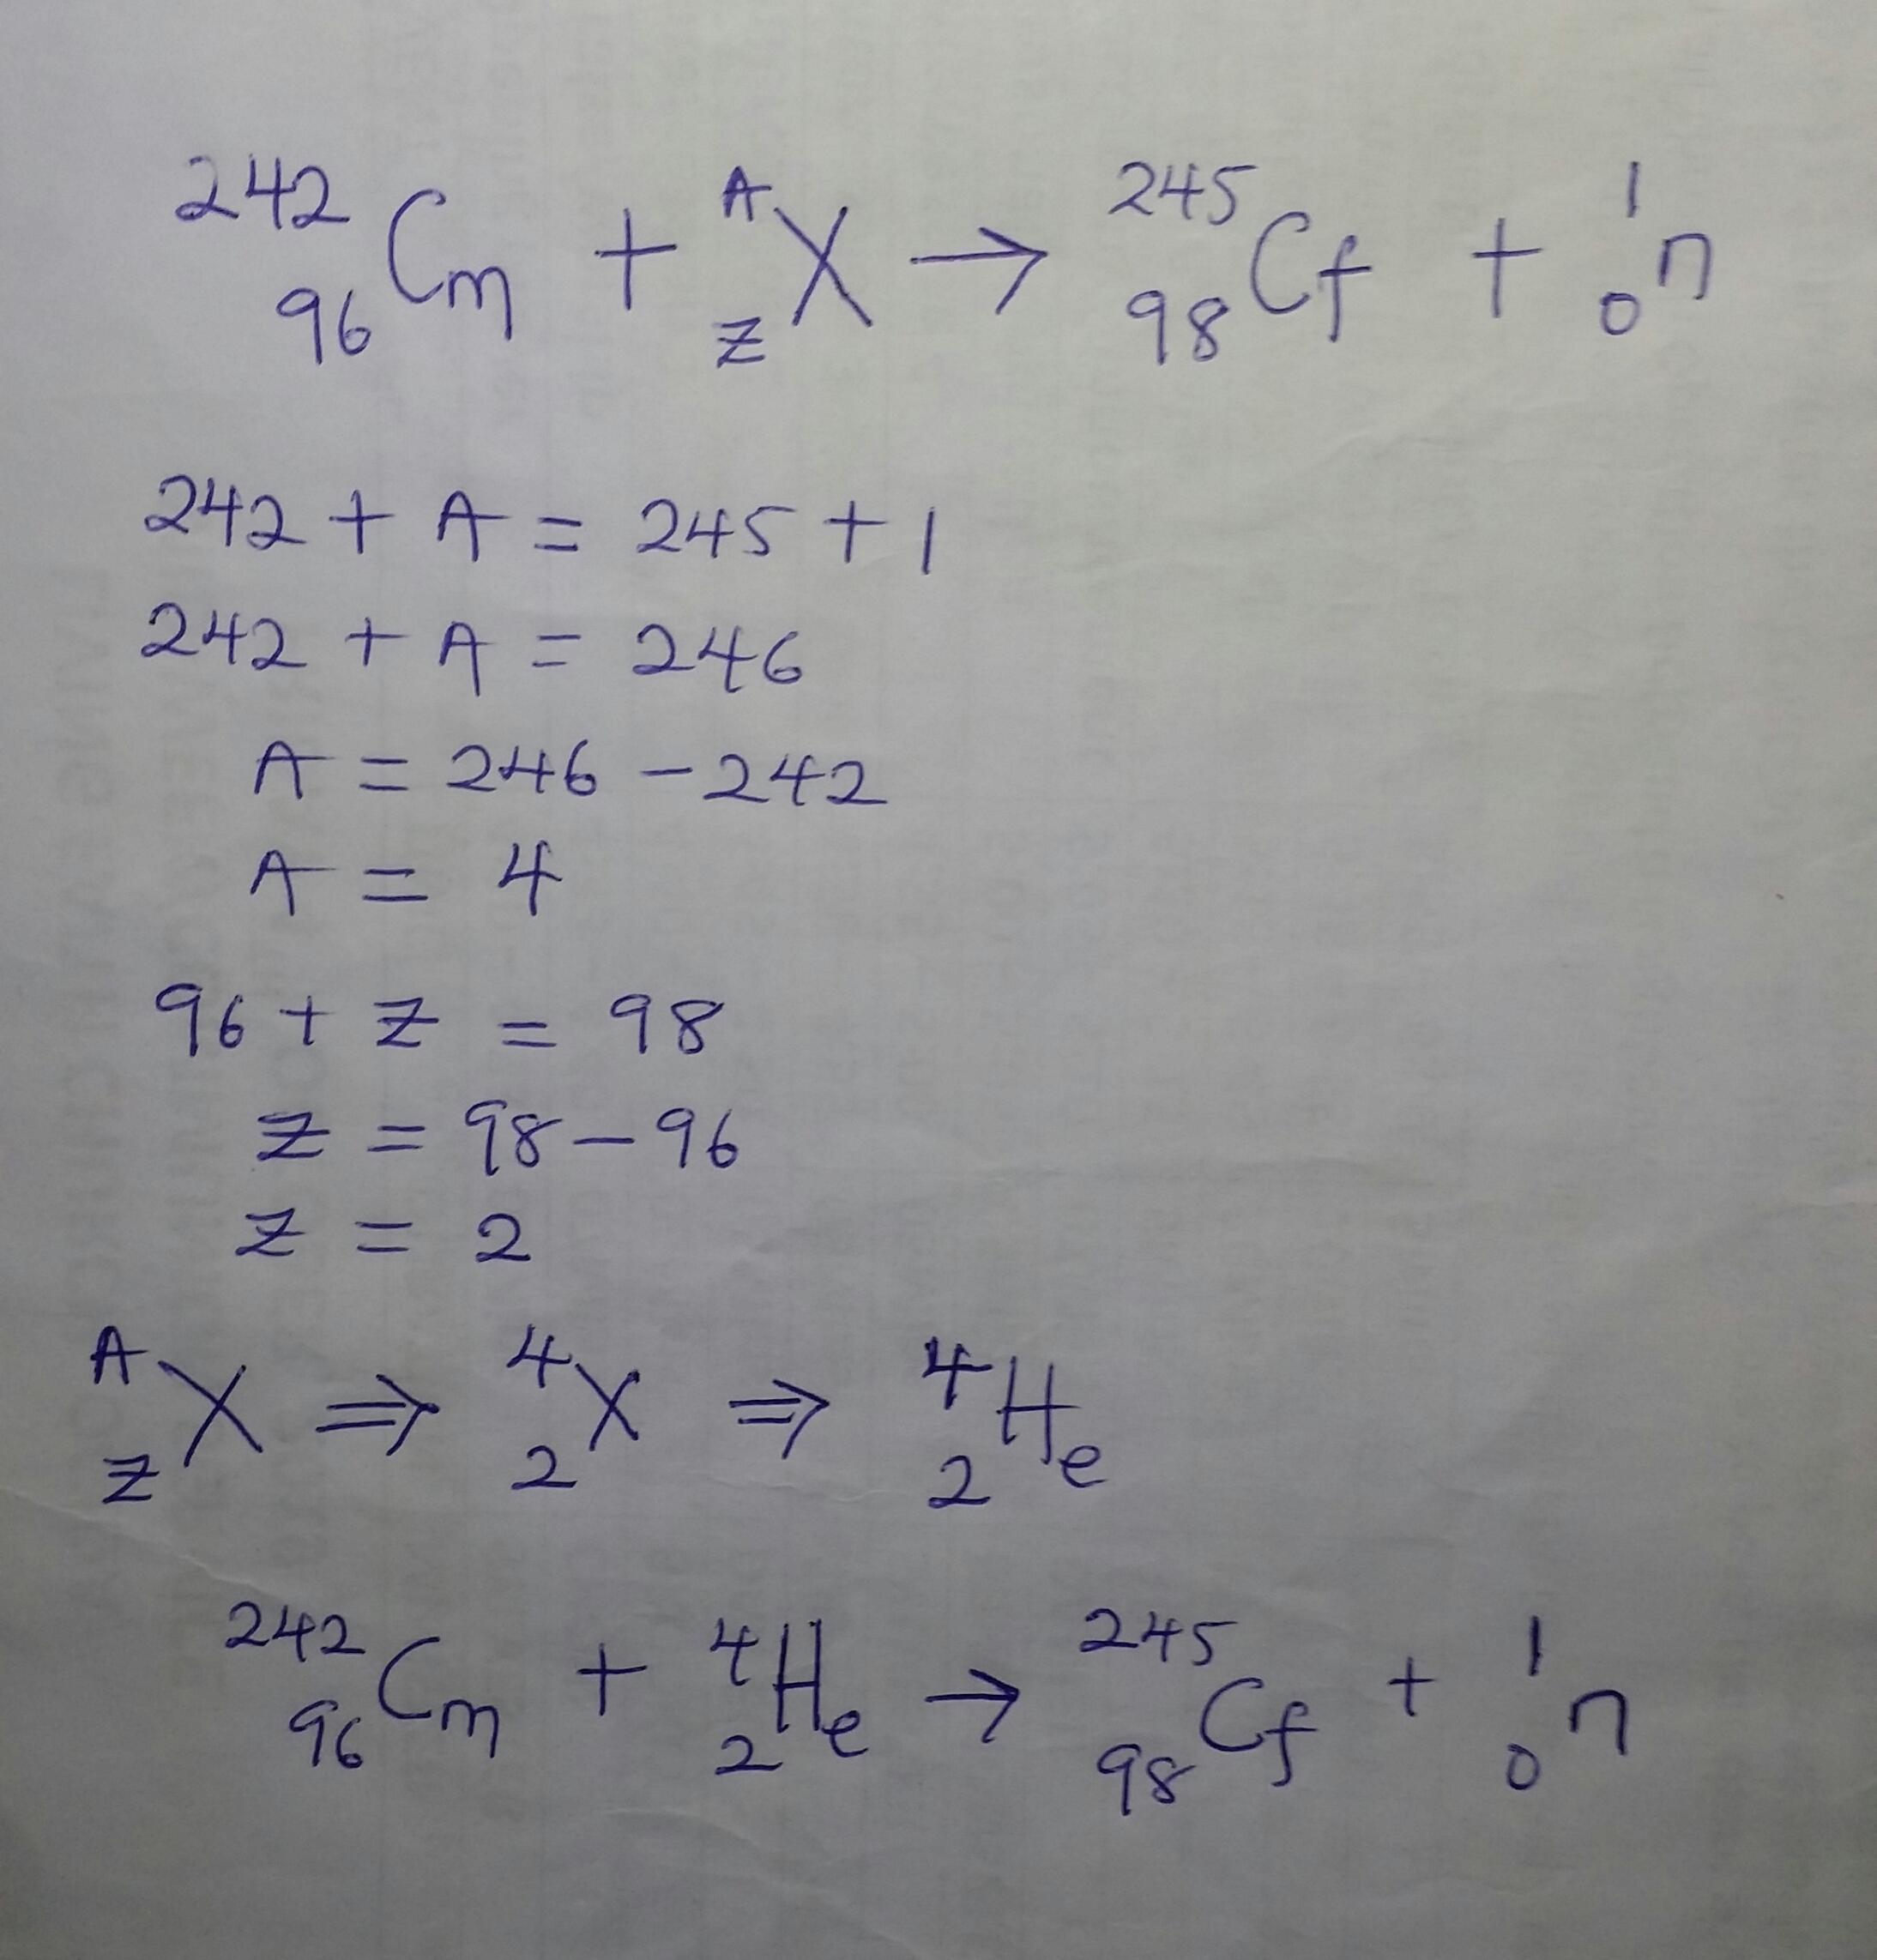 ²⁴²₉₆Cm + ᴬ_ZX → ²⁴⁵₉₈Cf + ¹₀n
242 + A = 245 + 1
242 + A = 246
A = 246 - 242
A = 4
96 + Z = 98
Z = 98 - 96
Z = 2
ᴬ_ZX ⇒ ⁴₂X ⇒ ⁴₂He
²⁴²₉₆Cm + ⁴₂He → ²⁴⁵₉₈Cf + ¹₀n